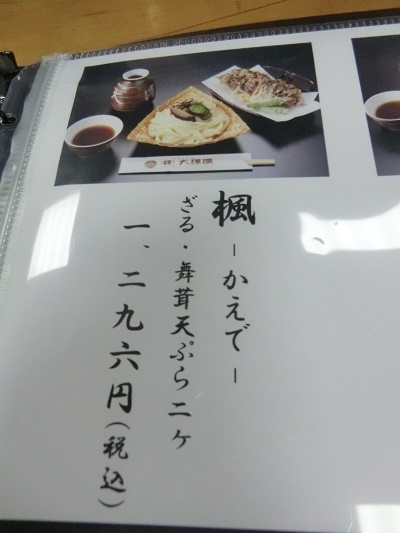 楓
－かえで－
ざる・舞茸天ぷら二ヶ
一、二九六円(税込)